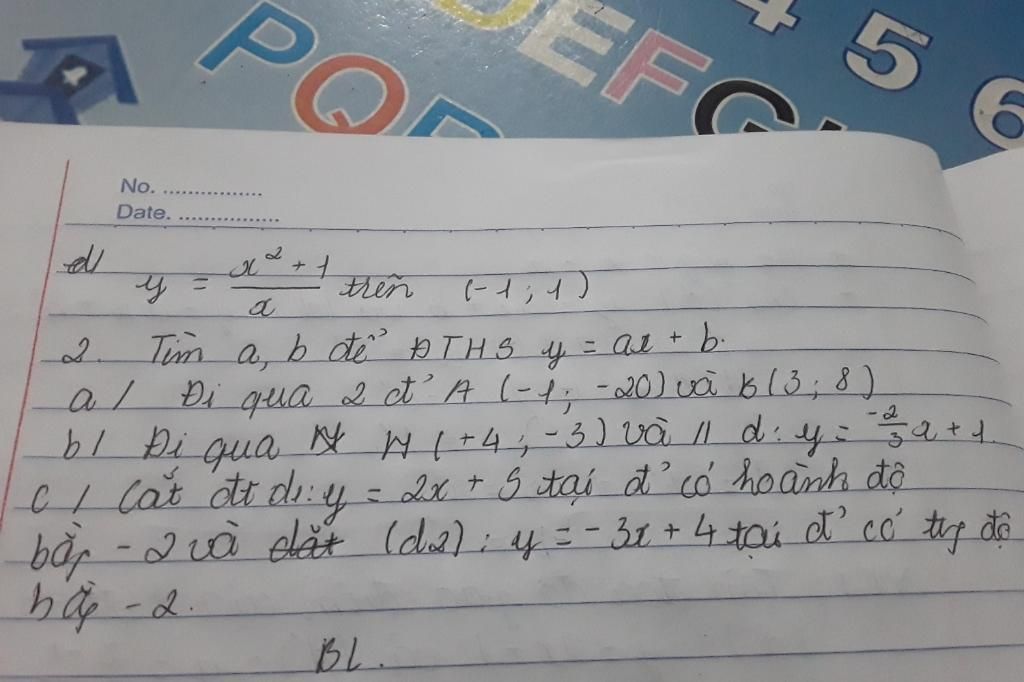 PQR
DEFG
4 5 6
No. ................
Date. ................
d/ y = \frac{x^2 + 1}{x} trên (-1 ; 1)
2. Tìm a, b để ĐTHS y = ax + b.
a / Đi qua 2 đ' A (-1 ; -20) và B(3 ; 8)
b / Đi qua N (+4 ; -3) và // d : y = \frac{-2}{3}x + 1
c / Cắt đt d1 : y = 2x + 5 tại đ' có hoành độ
bằg - 2 và (d2) : y = - 3x + 4 tại đ' có tug độ
bằg - 2.
BL.